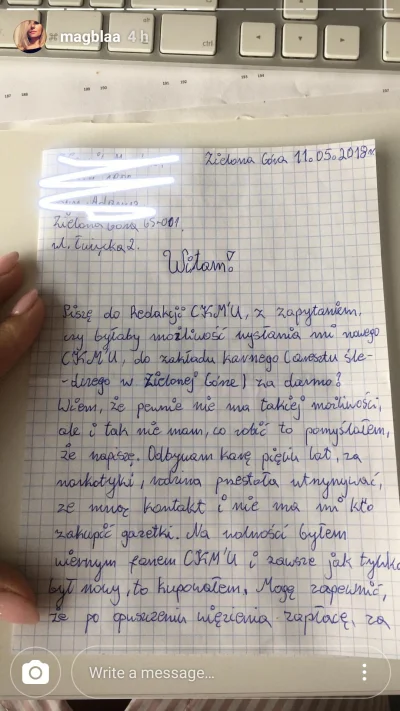 magblaa 4 h
ctrl
Zielona Góra 11.05.2018r.
Zielona Góra 65-001,
ul. Łużycka 2.
Witam!
Piszę do Redakcji CKM'U, z zapytaniem,
czy byłaby możliwość wysłania mi nowego
CKM'U, do zakładu karnego (aresztu śle-
-dczego w Zielonej Górze) za darmo?
Wiem, że pewnie nie ma takiej możliwości,
ale i tak nie mam, co robić to pomyślałem,
że napiszę. Odbywam karę pięciu lat, za
narkotyki, rodzina przestała utrzymywać,
ze mną kontakt i nie ma mi kto
zakupić gazetki. Na wolności byłem
wiernym fanem CKM'U i zawsze jak tylko
był nowy, to kupowałem. Mogę zapewnić,
że po opuszczeniu więzienia zapłacę, za
Write a message...